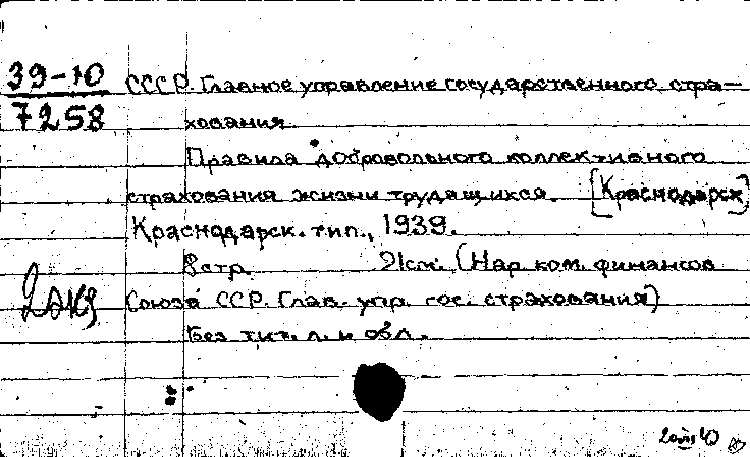 39-10
7258
СССР. Главное управление государственного стра-
хования.
Правила добровольного коллективного
страхования жизни трудящихся. [Краснодарск]
Краснодарск. тип., 1939.
8 стр. 21 см. (Нар. ком. финансов
2 экз
Союза ССР. Глав. упр. гос. страхования)
Без тит. л. и обл.